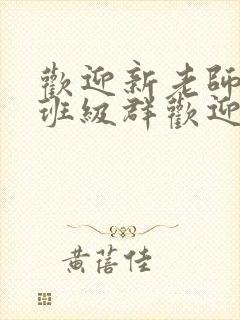 歡迎新老師
班級群歡迎
黃蓓佳